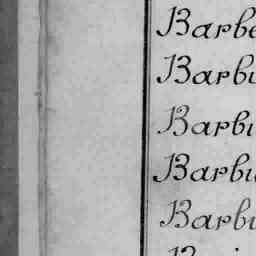 Barbe
Barbi
Barbi
Barbi
Barbi